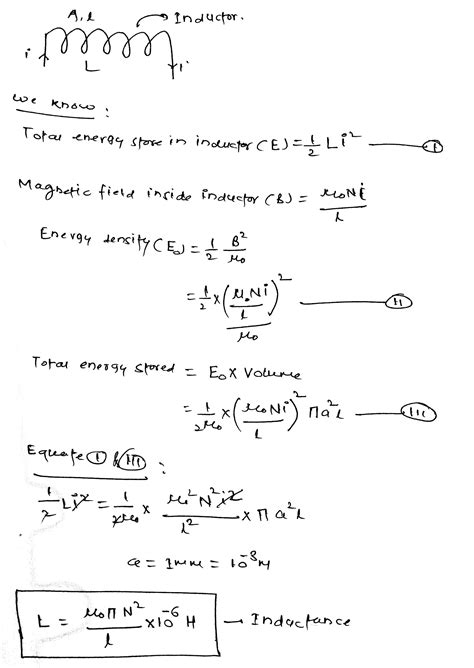 A, l → Inductor.
i L i
We know :
Total energy store in inductor (E) = 1/2 Li² —— I
Magnetic field inside inductor (B) = μ₀Ni/l
Energy density (E₀) = 1/2 B²/μ₀
= 1/2 × (μ₀Ni/l)²/μ₀ —— II
Total energy stored = E₀ × Volume
= 1/2μ₀ × (μ₀Ni/l)² πa²l —— III
Equate I & III :
1/2 Li² = 1/2μ₀ × μ₀²N²i²/l² × π a²l
a = 1mm = 10⁻³m
L = μ₀πN²/l × 10⁻⁶ H → Inductance